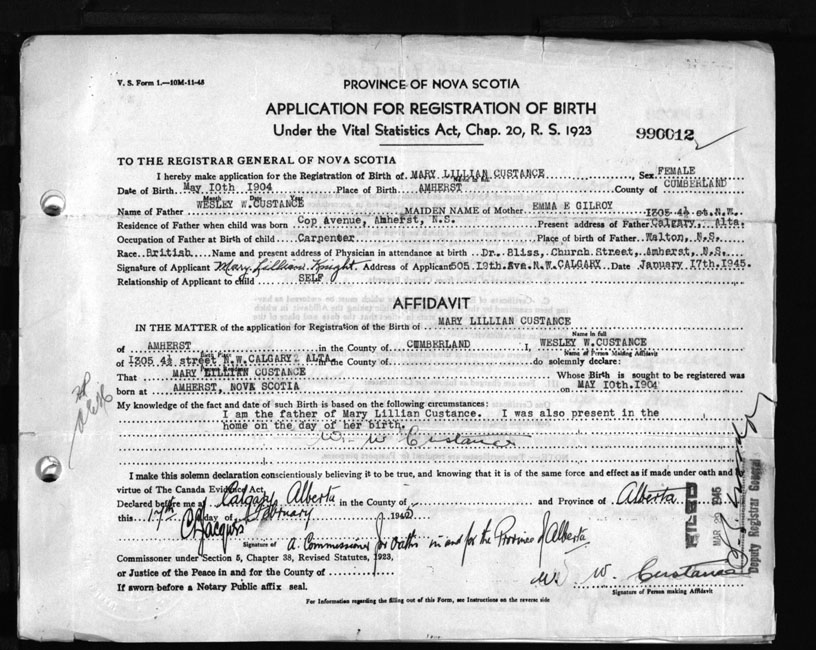 V. S. Form 1.—10M-11-43
PROVINCE OF NOVA SCOTIA
APPLICATION FOR REGISTRATION OF BIRTH
Under the Vital Statistics Act, Chap. 20, R. S. 1923
990012
TO THE REGISTRAR GENERAL OF NOVA SCOTIA
I hereby make application for the Registration of Birth of MARY LILLIAN CUSTANCE Sex FEMALE
Date of Birth May 10th 1904 Place of Birth AMHERST County of CUMBERLAND
Month
Name of Father WESLEY W.CUSTANCE MAIDEN NAME of Mother EMMA E GILROY 1305 4½ st.N.W.
Residence of Father when child was born Cop Avenue, Amherst, N.S. Present address of Father Calgary, Alta.
Occupation of Father at Birth of child Carpenter Place of birth of Father Walton, N.S.
Race British Name and present address of Physician in attendance at birth Dr. Bliss, Church Street, Amherst, N.S.
Signature of Applicant Mary Lillian Knight Address of Applicant 505 19th Ave. N.W. CALGARY Date January 17th 1945.
Relationship of Applicant to child SELF
AFFIDAVIT
IN THE MATTER of the application for Registration of the Birth of MARY LILLIAN CUSTANCE
Name in full
of AMHERST in the County of CUMBERLAND I, WESLEY W.CUSTANCE
Birth Place Name of Person Making Affidavit
of 1305 4½ street N.W.CALGARY ALTA. in the County of do solemnly declare:
That MARY LILLIAN CUSTANCE Whose Birth is sought to be registered was
born at AMHERST, NOVA SCOTIA on MAY 10th.1904
My knowledge of the fact and date of such Birth is based on the following circumstances:
I am the father of Mary Lillian Custance. I was also present in the
home on the day of her birth.
W. W Custance
I make this solemn declaration conscientiously believing it to be true, and knowing that it is of the same force and effect as if made under oath and
virtue of The Canada Evidence Act,
Declared before me at Calgary Alberta in the County of and Province of Alberta
this 17th day of February 1945
C Jacques
Signature of a Commissioner for Oaths in and for the Province of Alberta
Commissioner under Section 5, Chapter 38, Revised Statutes, 1923,
or Justice of the Peace in and for the County of
W. W. Custance
If sworn before a Notary Public affix seal.
Signature of Person making Affidavit
For Information regarding the filling out of this Form, see Instructions on the reverse side
FILED
MAR 20 1945
Deputy Registrar General